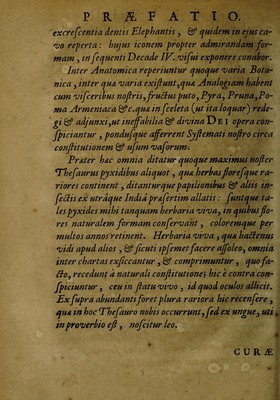 PRÆFATIO.
excrescentia dentis Elephantis, & quidem in ejus ca-
vo reperta: hujus iconem propter admirandam for-
mam, in sequenti Decade IV. visui exponere conabor.
Inter Anatomica reperiuntur quoque varia Bota-
nica, inter qua varia existunt, qua Analogiam habent
cum visceribus nostris, fructus puto, Pyra, Pruna, Po-
ma Armeniaca &c. qua in sceleta (ut ita loquar) rede-
gi & adjunxi, ut ineffabilia & divina DEI opera con-
spiciantur, pondusque afferrent Systemati nostro circa
constitutionem & usum vasorum.
Præter hæc omnia ditatur quoque maximus noster
Thesaurus pyxidibus aliquot, qua herbas floresque ra-
riores continent, ditanturque papilionibus & aliis in-
sectis ex utráque Indiá præsertim allatis: suntque ta-
les pyxides mihi tanquam herbaria viva, in quibus flo-
res naturalem formam conservant, coloremque per
multos annos retinent. Herbaria viva, qua hactenus
vidi apud alios, & sicuti ipsemet facere assoleo, omnia
inter chartas exsiccantur, & comprimuntur, quo fa-
cto, recedunt à naturali constitutione; hic è contra con-
spiciuntur, ceu in statu vivo, id quod oculos allicit.
Ex supra abundanti foret plura rariora hic recensere,
qua in hoc Thesauro nobis occurrunt, sed ex ungue, uti
in proverbio est, noscitur leo.
CURÆ